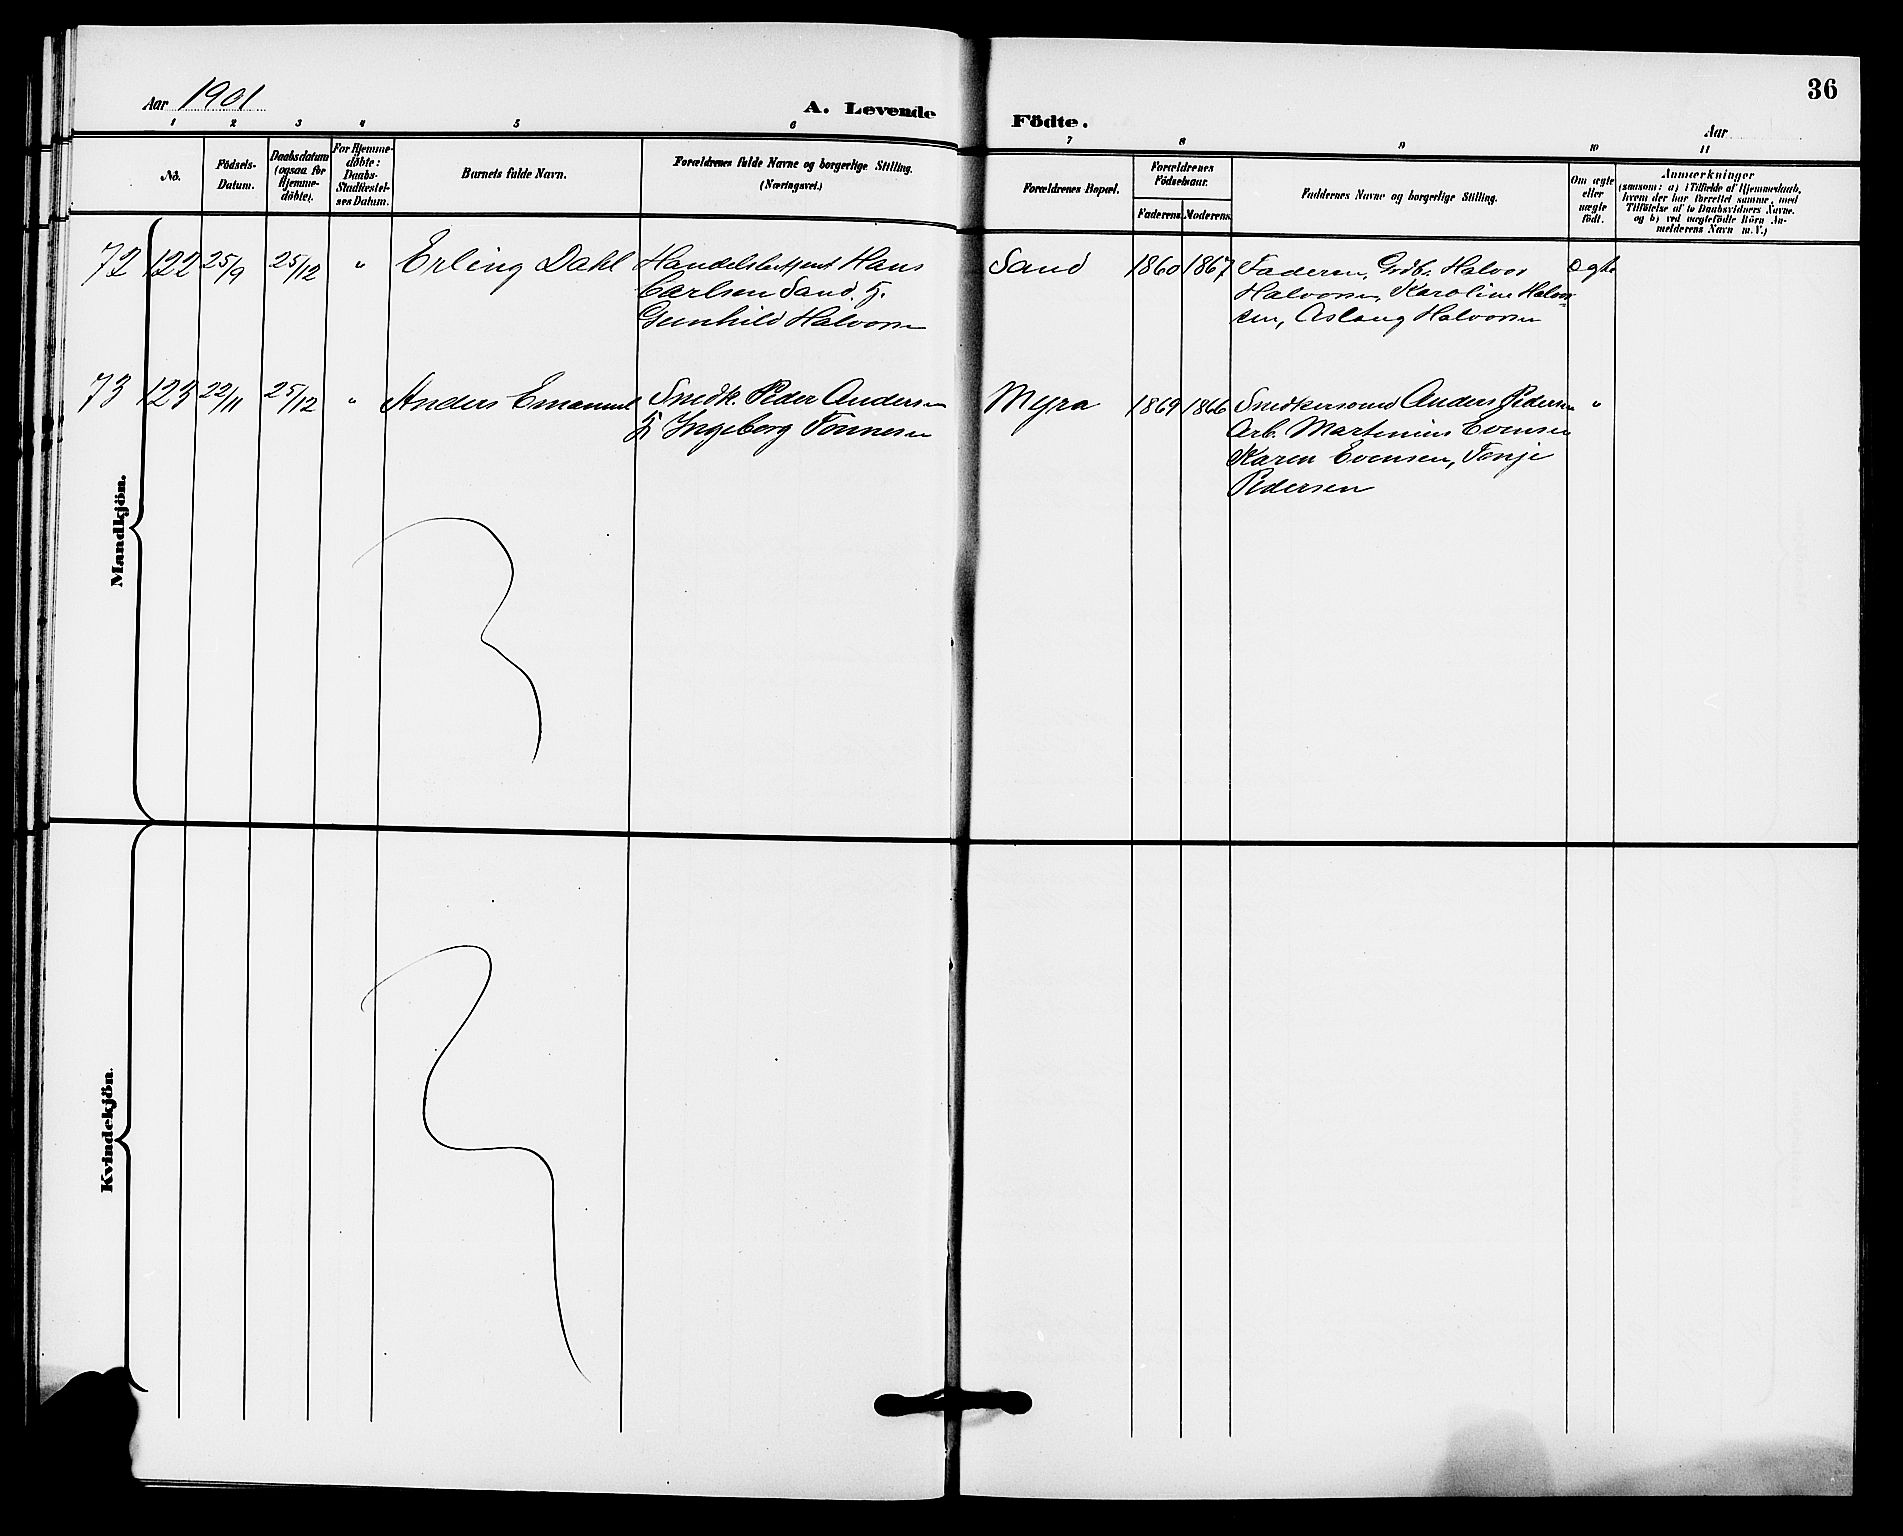 Aar 1901
A. Levende
Födte.
36
Aar
1 2 3 4 5 6 7 8 9 10 11
No.
Födsels-
Datum.
Daabsdatum
(ogsaa for
Hjemme-
döbte).
For Hjemme-
döbte:
Daabs-
Stadfæstel-
ses Datum.
Barnets fulde Navn.
Forældrenes fulde Navne og borgerlige Stilling.
(Næringsvei.)
Forældrenes Bopæl.
Forældrenes
Födselsaar.
Faderens Moderens
Faddernes Navne og borgerlige Stilling.
Om ægte
eller
uægte
födt.
Anmærkninger
(saasom: a) i Tilfælde af Hjemmedaab,
hvem der har forrettet samme, med
Tilföielse af to Daabsvidners Navne.
og b) ved uægtefödte Börn An-
melderens Navn m. V.)
Mandkjön.
72 122 25/9 25/12 " Erling Dahl
Handelsbetjent Hans
Carlsen Sand. h.
Gunhild Halvorsen
Sand 1860 1867
Faderen, Grdb. Halvor
Halvorsen, Karoline Halvor-
sen, Aslaug Halvorsen
Ægte
73 123 22/11 25/12 " Anders Emanuel
Snedk. Peder Andersen
h. Ingeborg Tønnesen
Myra 1869 1866
Snedkersvend Anders Pedersen
Arb. Martinius Evensen
Karen Evensen, Tonje
Pedersen
"
Kvindekjön.